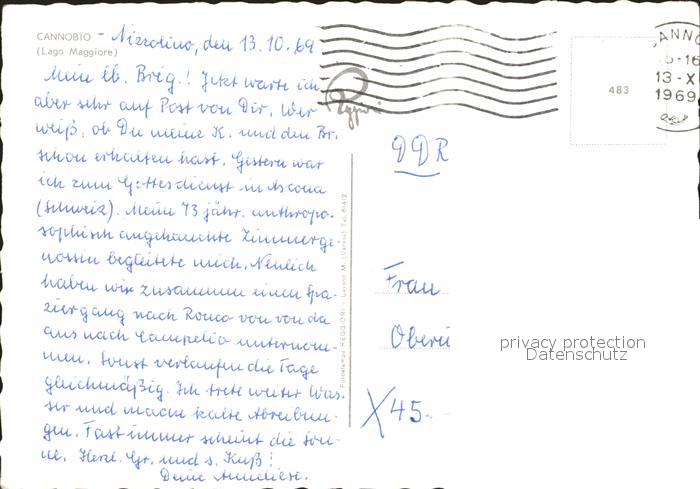 CANNOBIO - Nizzolino, den 13.10.69
(Lago Maggiore)
Mein lb. Brig.! Jetzt warte ich
aber sehr auf Post von Dir. Wer
weiß, ob Du meine K. und den Br.
schon erhalten hast. Gestern war
ich zum Gottesdienst in Ascona
(Schweiz). Meine 73 jähr. anthropo-
sophisch angehauchte Zimmerge-
nossin begleitete mich. Neulich
haben wir zusammen einen Spa-
ziergang nach Ronco von von da
aus nach Campelio unternom-
men. Sonst verlaufen die Tage
gleichmäßig. Ich trete weiter Was-
ser und mache kalte Abreibun-
gen. Fast immer scheint die Son-
ne. Herzl. Gr. und s. Kuß!
Deine Anneliese.
ANNO
-16
13-X
1969
483
DDR
Frau
Oberü
X 45
privacy protection
Datenschutz